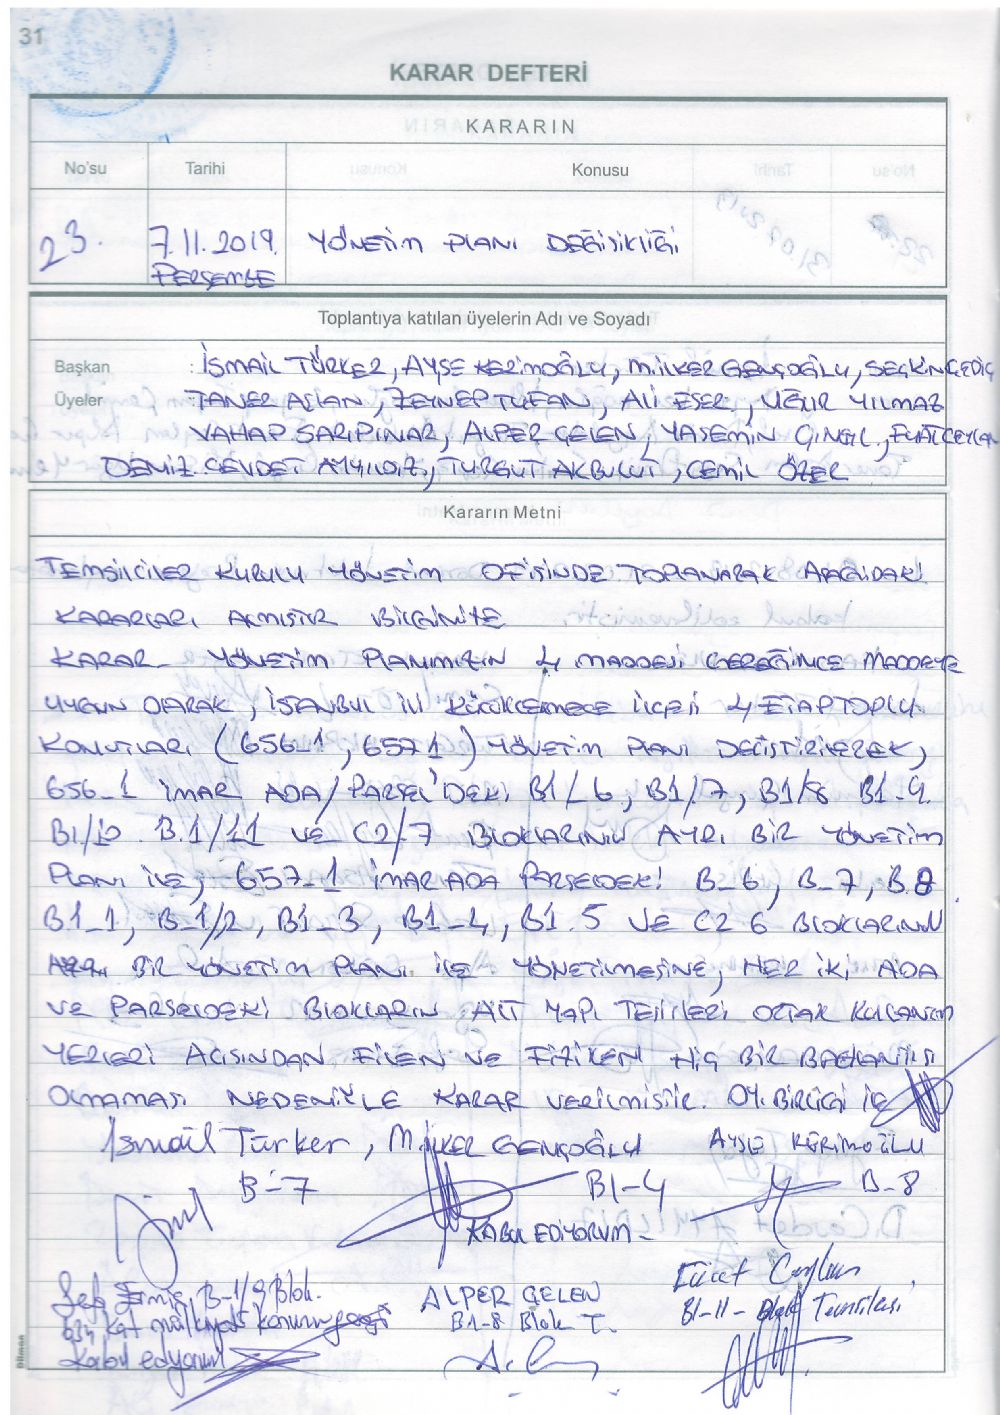 31
KARAR DEFTERİ
KARARIN
No'su Tarihi Konusu
23. 7.11.2019. YÖNETİM PLANI DEĞİŞİKLİĞİ
PERŞEMBE
Toplantıya katılan üyelerin Adı ve Soyadı
Başkan : İSMAİL TÜRKER, AYŞE KERİMOĞLU, M.İLKER GENÇOĞLU, SEÇKİN GEDİÇ
Üyeler TANER ASLAN, ZEYNEP TUFAN, ALİ ESER, UĞUR YILMAZ
VAHAP SARIPINAR, ALPER GELEN, YASEMİN ÇINGIL, FUAT CEYLAN
DENİZ CEVDET AYYILDIZ, TURGUT AKBULUT, CEMİL ÖZER
Kararın Metni
TEMSİLCİLER KURULU YÖNETİM OFİSİNDE TOPLANARAK AŞAĞIDAKİ
KARARLARI ALMIŞTIR BİLGİNİZE
KARAR- YÖNETİM PLANIMIZIN 4 MADDESİ GEREĞİNCE MADDEYE
UYGUN OLARAK, İSTANBUL İLİ KÜÇÜKÇEKMECE İLÇESİ 4 ETAP TOPLU
KONUTLARI (656-1, 657 1) YÖNETİM PLANI DEĞİŞTİRİLEREK,
656-1 İMAR ADA/PARSEL'DEKİ B1/6, B1/7, B1/8 B1-9.
B1/10 B.1/11 VE C2/-7 BLOKLARININ AYRI BİR YÖNETİM
PLANI İLE, 657-1 İMAR ADA PARSELDEKİ B-6, B-7, B.8
B1-1, B-1/2, B1-3, B1-4, B1.5 VE C2 6 BLOKLARININ
BİR YÖNETİM PLANI İLE YÖNETİLMESİNE, HER İKİ ADA
VE PARSELDEKİ BLOKLARIN ALT YAPI TESİSLERİ ORTAK KULLANIM
YERLERİ AÇISINDAN FİİLEN VE FİZİKEN HİÇ BİR BAĞLANTISI
OLMAMASI NEDENİYLE KARAR VERİLMİŞTİR. OY. BİRLİĞİ İLE
İsmail Türker, M.İLKER GENÇOĞLU AYŞE KERİMOĞLU
B-7 B1-4 B-8
KABUL EDİYORUM-
B-1/9 Blok. ALPER GELEN Fuat Ceylan
634 Kat mülkiyeti kanunu B1-8 Blok T. B1-11- Blok Temsilcisi
Kabul ediyorum